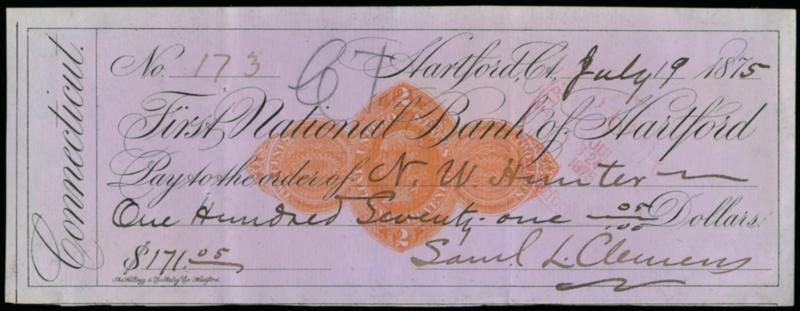 Connecticut.
No. 173 Hartford, Ct. July 19 1875
First National Bank of Hartford
Pay to the order of N. W. Hunter
One Hundred Seventy-one 05/100 Dollars.
$171.05 Saml. L. Clemens
2
2